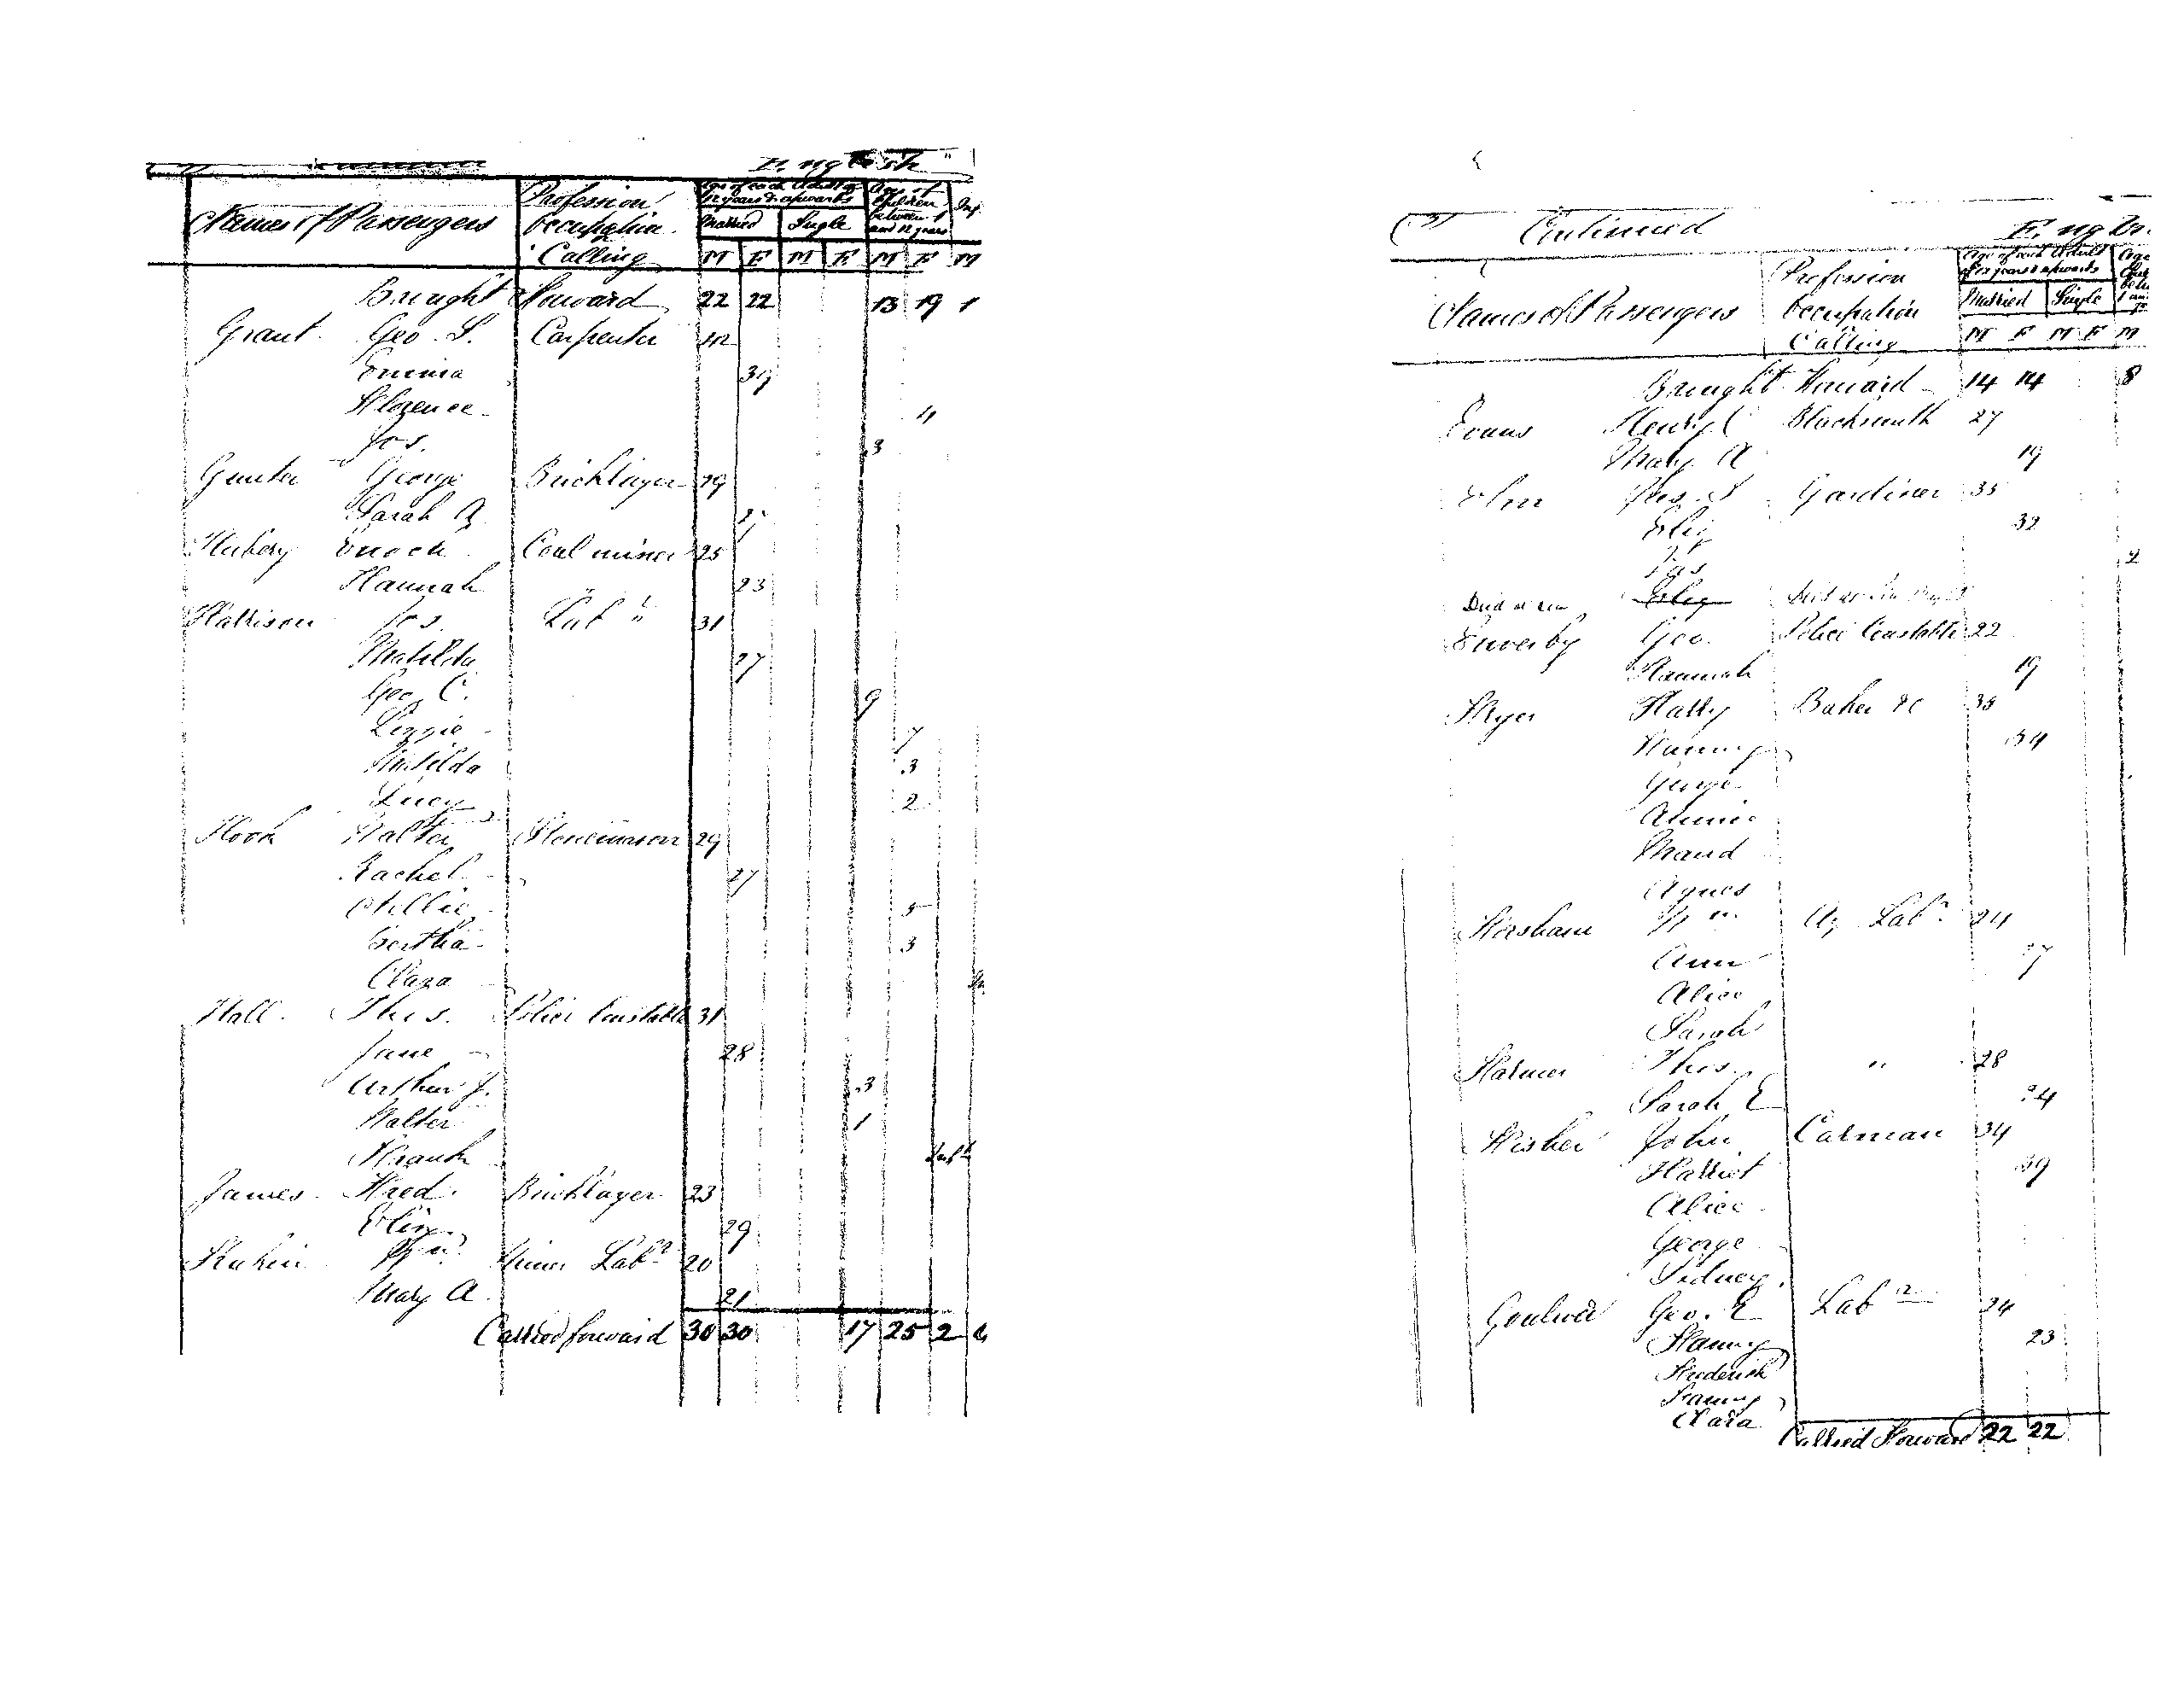 English
Names of Passengers Profession Occupation Calling Age of each Adult of 12 years & upwards Age of Children between 1 and 12 years Inf.
Married Single
M F M F M F M
Brought Forward 22 22 13 19 1
Grant Geo. S. Carpenter
Emma
Florence 4
Jos. 3
Gunter George Bricklayer 29
Sarah A
Enoch Coal miner 25
Hannah 23
Harrison Jos. Lab " 31
Matilda 27
Geo. C. 9
Lizzie 7
Matilda 3
Lucy 2
Hook Walter Stonemason 29
Rachel 27
Nellie 5
Bertha 3
Clara
Hall Thos. Police Constable 31
Jane 28
Arthur J. 3
Walter 1
Frank Inft
James Fred. Bricklayer 23
Eliz 29
Wm Labr 20
Mary A 21
Carried forward 30 30 17 25 2
Continued
Names of Passengers Profession Occupation Calling Age of each Adult of 12 years & upwards
Married Single
M F M F M
Brought Forward 14 14 8
Evans Henry C Blacksmith 27
Mary A 19
Gardiner 35
Eliz 32
Jas 2
Died at sea Eliz
Geo. Police Constable 22
Hannah 19
Harry Baker &c
Fanny 34
George
Annie
Maud
Agnes
Wm Ag Labr 24
Ann
Alice
Sarah
Harmer Thos. " 28
Sarah E 24
Fisher John Carman 34
Harriet 39
Alice
George
Sidney
Geo. E Labr 24
Fanny 23
Frederick
Fanny
Clara
Carried Forward 22 22